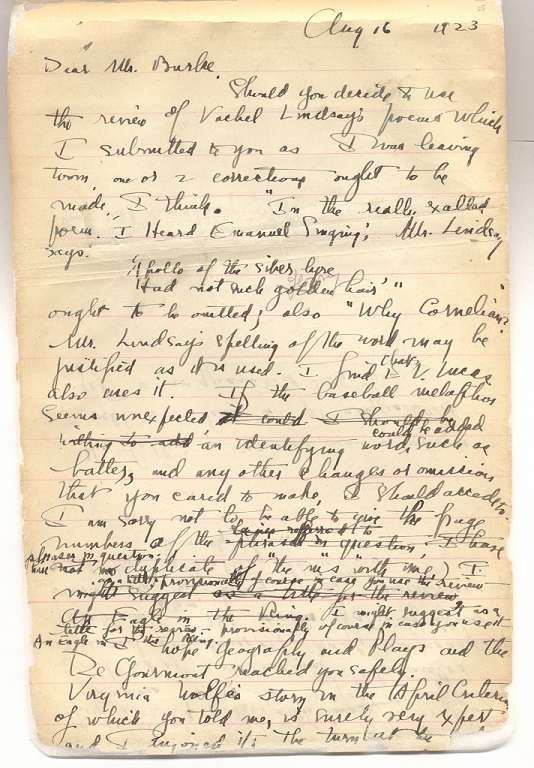 Aug 16 1923
Dear Mr. Burke,
Should you decide to use
the review of Vachel Lindsay's poems which
I submitted to you as I was leaving
town, one or 2 corrections ought to be
made, I think. "In the really exalted
poem. I Heard Emanuel Singing; Mr. Lindsay
says.
'Apollo of the silver lyre
Had not such golden hair'"
ought to be omitted; also "Why Cornelian?"
Mr. Lindsay's spelling of the word may be
justified as it is used. I find that E. V. Lucas
also uses it. If the baseball metaphor
seems unexpected it could I should be
nothing to add an identifying word such as could be added
batter, and any other changes or omissions
that you cared to make, I should accede to.
I am sorry not to be able to give the page
numbers of the phrases in question, I have
phrases in question;
no duplicate of the ms with me) I
provisionally of course in case you use the review
might suggest as a title for the review
An Eagle in the Ring. I might suggest as a
title for the review - provisionally of course in case you use it
An Eagle in the Ring.
I hope Geography and Plays and the
De Gourmont reached you safely.
Virginia Wolfe's story in the April Criterion
of which you told me, is surely very expert
and I enjoyed it; the turn at the